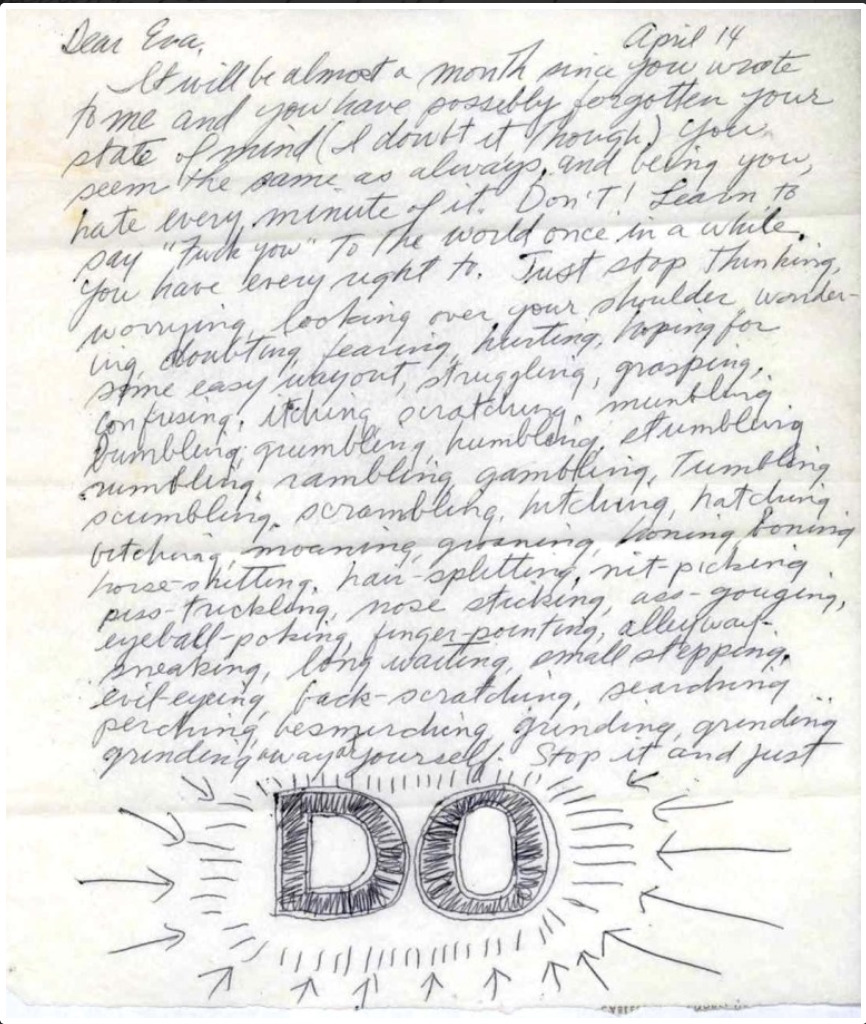 Dear Eva,
April 14
It will be almost a month since you wrote
to me and you have possibly forgotten your
state of mind (I doubt it though.) You
seem the same as always, and being you,
hate every minute of it. Don't! Learn to
say "Fuck you" to the world once in a while.
You have every right to. Just stop thinking,
worrying, looking over your shoulder, wonder-
ing, doubting, fearing, hurting, hoping for
some easy way out, struggling, grasping,
confusing, itching, scratching, mumbling
bumbling, grumbling, humbling, stumbling
rumbling, rambling, gambling, tumbling
scumbling, scrambling, hitching, hatching
bitching, moaning, groaning, honing, boning
horse-shitting, hair-splitting, nit-picking
piss-trickling, nose sticking, ass-gouging,
eyeball-poking, finger-pointing, alleyway-
sneaking, long waiting, small stepping,
evil-eyeing, back-scratching, searching
perching, besmirching, grinding, grinding
grinding away at yourself. Stop it and just
DO